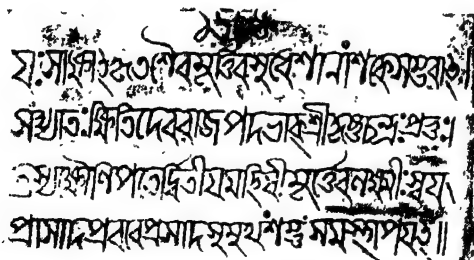 যঃসাক্ষাৎকৃতশৈবমূর্ত্তিবসুধেশানাংশকেসম্ভবাৎ
সংখ্যাতঃক্ষিতিদেবরাজপদভাক্শ্রীকৃষ্ণচন্দ্রঃপ্রভুঃ।
তস্যক্ষৌণিপতের্দ্বিতীযমহিষীমূর্ত্তেবলক্ষ্মীঃস্বযং
প্রাসাদপ্রবরেপ্রসাদসুমুখংশম্ভুংসমস্থাপযৎ॥